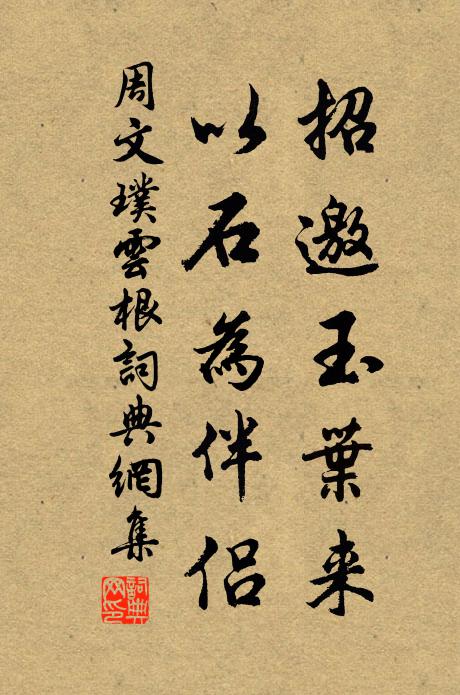 招邀玉葉来
以石為伴侣
周文璞雲根詞典網集
詞典網印